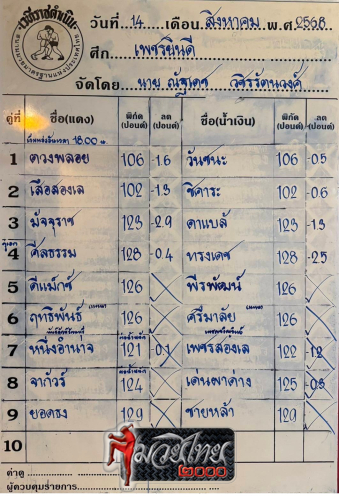 เวทีราชดำเนิน
วันที่ 14 เดือน สิงหาคม พ.ศ 2568
ศึก เพชรยินดี
จัดโดย นาย ณัฐเดช วชิรรัตนวงศ์
คู่ที่ ชื่อ(แดง) พิกัด (ปอนด์) ลด (ปอนด์) ชื่อ(น้ำเงิน) พิกัด (ปอนด์) ลด (ปอนด์)
18.00 น.
1 ดวงพลอย 106 -1.6 วันชนะ 106 -0.5
2 เสือสองเล 102 -1.3 ชิคาระ 102 -0.6
3 มัจจุราช 123 -2.9 ดาแบล้ 123 -1.3
4 ศีลธรรม 128 -0.4 ทรงเดช 128 -2.5
5 ดีแม็กซ์ 126 พีรพัฒน์ 126
6 ฤทธิพันธ์ 126 ศรีมาลัย 126
7 หนึ่งอำนาจ 121 -0.1 เพชรสองเล 122 -1.2
8 จากัวร์ 124 เด่นผาด่าง 125 -0.8
9 ยอดธง 129 ชายหล้า 129
10
คำคู่
ผู้ควบคุมรายการ
มวยไทย
2000